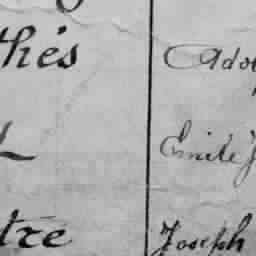 thés Adol
Emile J
tre Joseph